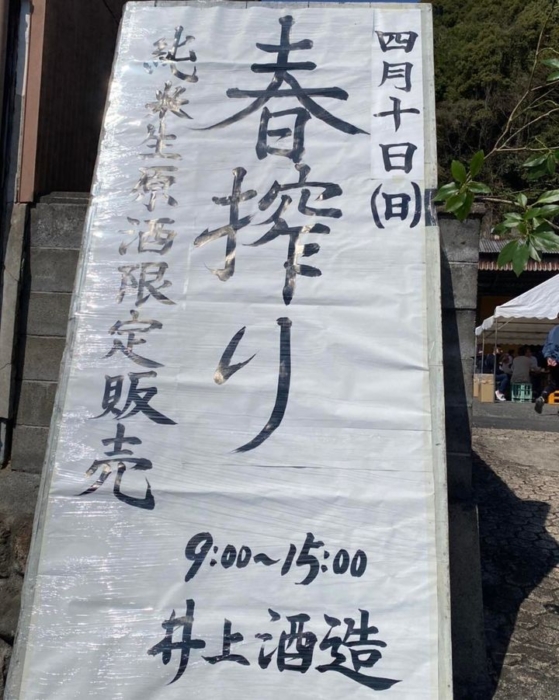 四月十日(日)
春搾り
純米生原酒限定販売
9:00~15:00
井上酒造